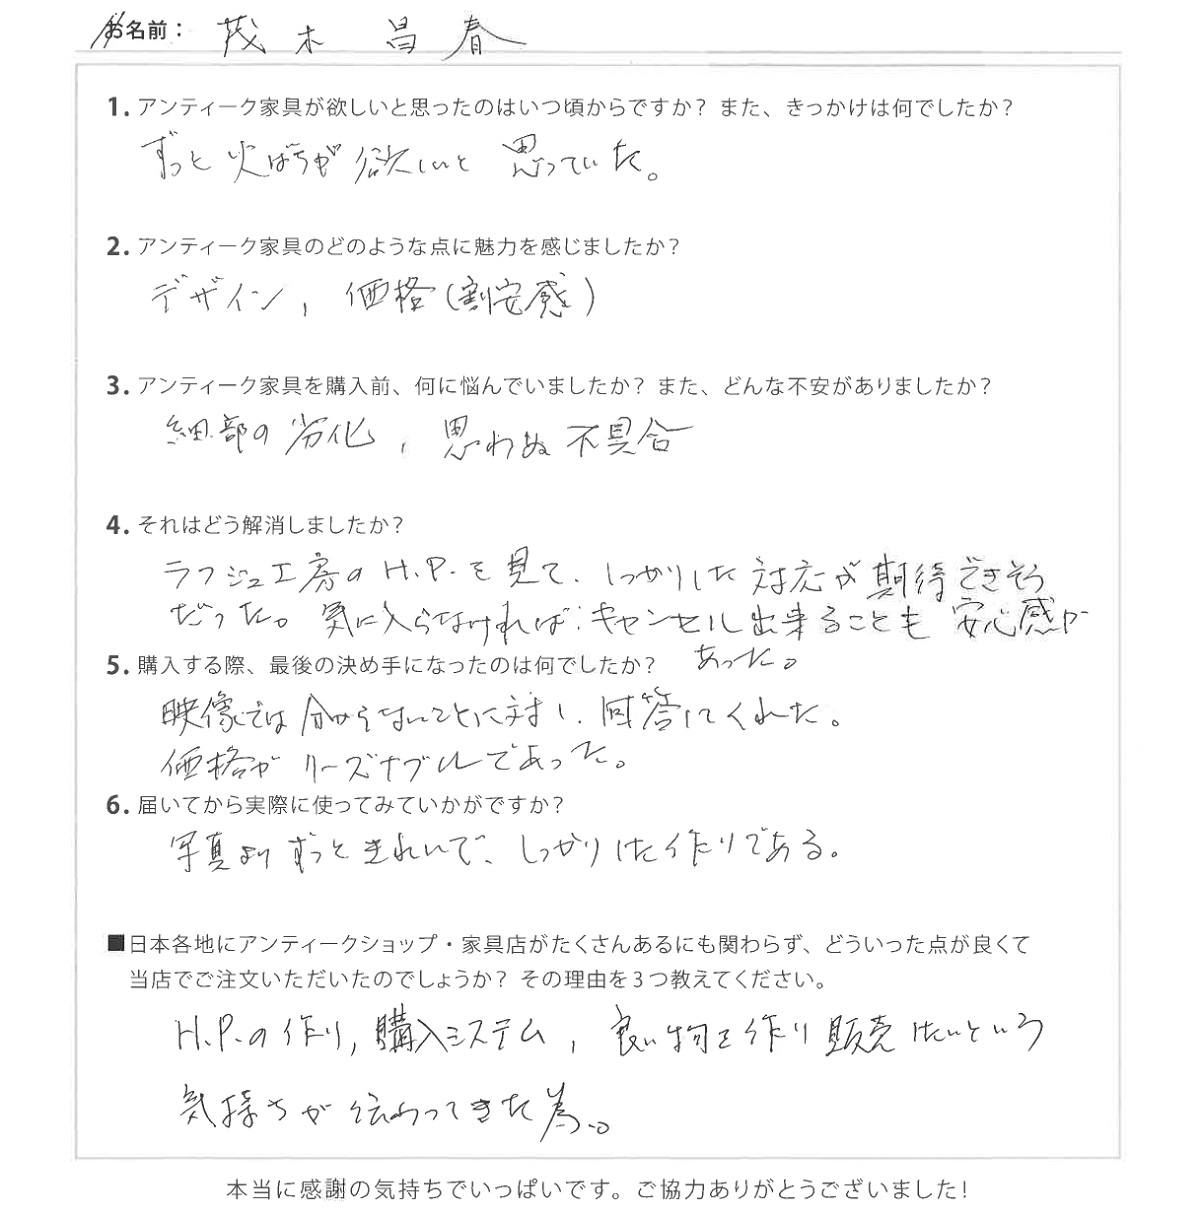 お名前： 茂木 昌春
1. アンティーク家具が欲しいと思ったのはいつ頃からですか？ また、きっかけは何でしたか？
ずっと火ばちが欲しいと思っていた。
2. アンティーク家具のどのような点に魅力を感じましたか？
デザイン, 価格（割安感）
3. アンティーク家具を購入前、何に悩んでいましたか？ また、どんな不安がありましたか？
細部の劣化, 思わぬ不具合
4. それはどう解消しましたか？
ラフジュ工房のH.P.を見て、しっかりした対応が期待できそう
だった。気に入らなければ、キャンセル出来ることも安心感が
あった。
5. 購入する際、最後の決め手になったのは何でしたか？
映像では分からないことに対し、回答してくれた。
価格がリーズナブルであった。
6. 届いてから実際に使ってみていかがですか？
写真よりずっときれいで、しっかりした作りである。
■日本各地にアンティークショップ・家具店がたくさんあるにも関わらず、どういった点が良くて
当店でご注文いただいたのでしょうか？ その理由を３つ教えてください。
H.P.の作り, 購入システム, 良い物を作り販売したいという
気持ちが伝わってきた為。
本当に感謝の気持ちでいっぱいです。ご協力ありがとうございました！